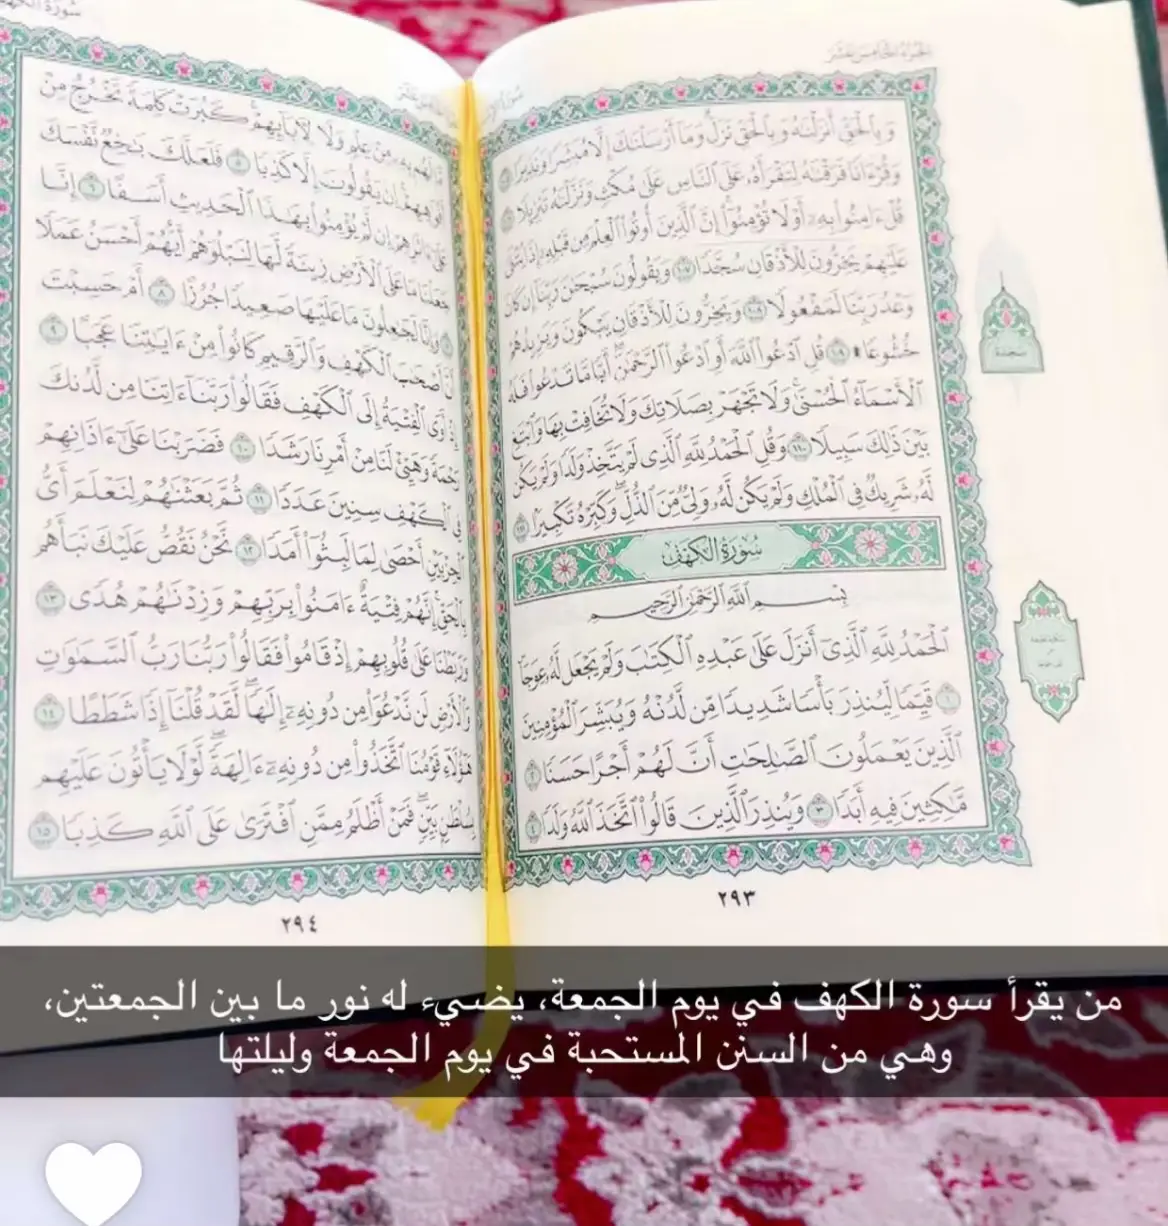 وَبِالْحَقِّ أَنزَلْنَاهُ وَبِالْحَقِّ نَزَلَ وَمَا أَرْسَلْنَاكَ إِلَّا مُبَشِّرًا وَنَذِيرًا ١٠٥
وَقُرْءَانًا فَرَقْنَاهُ لِتَقْرَأَهُ عَلَى النَّاسِ عَلَىٰ مُكْثٍ وَنَزَّلْنَاهُ تَنزِيلًا ١٠٦
قُلْ ءَامِنُوا بِهِ أَوْ لَا تُؤْمِنُوا إِنَّ الَّذِينَ أُوتُوا الْعِلْمَ مِن قَبْلِهِ إِذَا يُتْلَىٰ
عَلَيْهِمْ يَخِرُّونَ لِلْأَذْقَانِ سُجَّدًا ١٠٧ وَيَقُولُونَ سُبْحَانَ رَبِّنَا إِن كَانَ
وَعْدُ رَبِّنَا لَمَفْعُولًا ١٠٨ وَيَخِرُّونَ لِلْأَذْقَانِ يَبْكُونَ وَيَزِيدُهُمْ
خُشُوعًا ۩ ١٠٩ قُلِ ادْعُوا اللَّهَ أَوِ ادْعُوا الرَّحْمَٰنَ أَيًّا مَّا تَدْعُوا فَلَهُ
الْأَسْمَاءُ الْحُسْنَىٰ وَلَا تَجْهَرْ بِصَلَاتِكَ وَلَا تُخَافِتْ بِهَا وَابْتَغِ
بَيْنَ ذَٰلِكَ سَبِيلًا ١١٠ وَقُلِ الْحَمْدُ لِلَّهِ الَّذِي لَمْ يَتَّخِذْ وَلَدًا وَلَمْ يَكُن
لَّهُ شَرِيكٌ فِي الْمُلْكِ وَلَمْ يَكُن لَّهُ وَلِيٌّ مِّنَ الذُّلِّ وَكَبِّرْهُ تَكْبِيرًا ١١١
سُورَةُ الكَهْفِ
بِسْمِ اللَّهِ الرَّحْمَٰنِ الرَّحِيمِ
الْحَمْدُ لِلَّهِ الَّذِي أَنزَلَ عَلَىٰ عَبْدِهِ الْكِتَابَ وَلَمْ يَجْعَل لَّهُ عِوَجًا
١ قَيِّمًا لِّيُنذِرَ بَأْسًا شَدِيدًا مِّن لَّدُنْهُ وَيُبَشِّرَ الْمُؤْمِنِينَ
الَّذِينَ يَعْمَلُونَ الصَّالِحَاتِ أَنَّ لَهُمْ أَجْرًا حَسَنًا ٢
مَّاكِثِينَ فِيهِ أَبَدًا ٣ وَيُنذِرَ الَّذِينَ قَالُوا اتَّخَذَ اللَّهُ وَلَدًا ٤
٢٩٣
سجدة
مَّا لَهُم بِهِ مِنْ عِلْمٍ وَلَا لِآبَائِهِمْ كَبُرَتْ كَلِمَةً تَخْرُجُ مِنْ
أَفْوَاهِهِمْ إِن يَقُولُونَ إِلَّا كَذِبًا ٥ فَلَعَلَّكَ بَاخِعٌ نَّفْسَكَ
عَلَىٰ ءَاثَارِهِمْ إِن لَّمْ يُؤْمِنُوا بِهَٰذَا الْحَدِيثِ أَسَفًا ٦ إِنَّا
جَعَلْنَا مَا عَلَى الْأَرْضِ زِينَةً لَّهَا لِنَبْلُوَهُمْ أَيُّهُمْ أَحْسَنُ عَمَلًا
٧ وَإِنَّا لَجَاعِلُونَ مَا عَلَيْهَا صَعِيدًا جُرُزًا ٨ أَمْ حَسِبْتَ
أَنَّ أَصْحَابَ الْكَهْفِ وَالرَّقِيمِ كَانُوا مِنْ ءَايَاتِنَا عَجَبًا ٩
إِذْ أَوَى الْفِتْيَةُ إِلَى الْكَهْفِ فَقَالُوا رَبَّنَا ءَاتِنَا مِن لَّدُنكَ
رَحْمَةً وَهَيِّئْ لَنَا مِنْ أَمْرِنَا رَشَدًا ١٠ فَضَرَبْنَا عَلَىٰ ءَاذَانِهِمْ
فِي الْكَهْفِ سِنِينَ عَدَدًا ١١ ثُمَّ بَعَثْنَاهُمْ لِنَعْلَمَ أَيُّ
الْحِزْبَيْنِ أَحْصَىٰ لِمَا لَبِثُوا أَمَدًا ١٢ نَّحْنُ نَقُصُّ عَلَيْكَ نَبَأَهُم
بِالْحَقِّ إِنَّهُمْ فِتْيَةٌ ءَامَنُوا بِرَبِّهِمْ وَزِدْنَاهُمْ هُدًى ١٣
وَرَبَطْنَا عَلَىٰ قُلُوبِهِمْ إِذْ قَامُوا فَقَالُوا رَبُّنَا رَبُّ السَّمَاوَاتِ
وَالْأَرْضِ لَن نَّدْعُوَا مِن دُونِهِ إِلَٰهًا لَّقَدْ قُلْنَا إِذًا شَطَطًا ١٤
هَٰؤُلَاءِ قَوْمُنَا اتَّخَذُوا مِن دُونِهِ ءَالِهَةً لَّوْلَا يَأْتُونَ عَلَيْهِم
بِسُلْطَانٍ بَيِّنٍ فَمَنْ أَظْلَمُ مِمَّنِ افْتَرَىٰ عَلَى اللَّهِ كَذِبًا ١٥
٢٩٤
من يقرأ سورة الكهف في يوم الجمعة، يضيء له نور ما بين الجمعتين،
وهي من السنن المستحبة في يوم الجمعة وليلتها